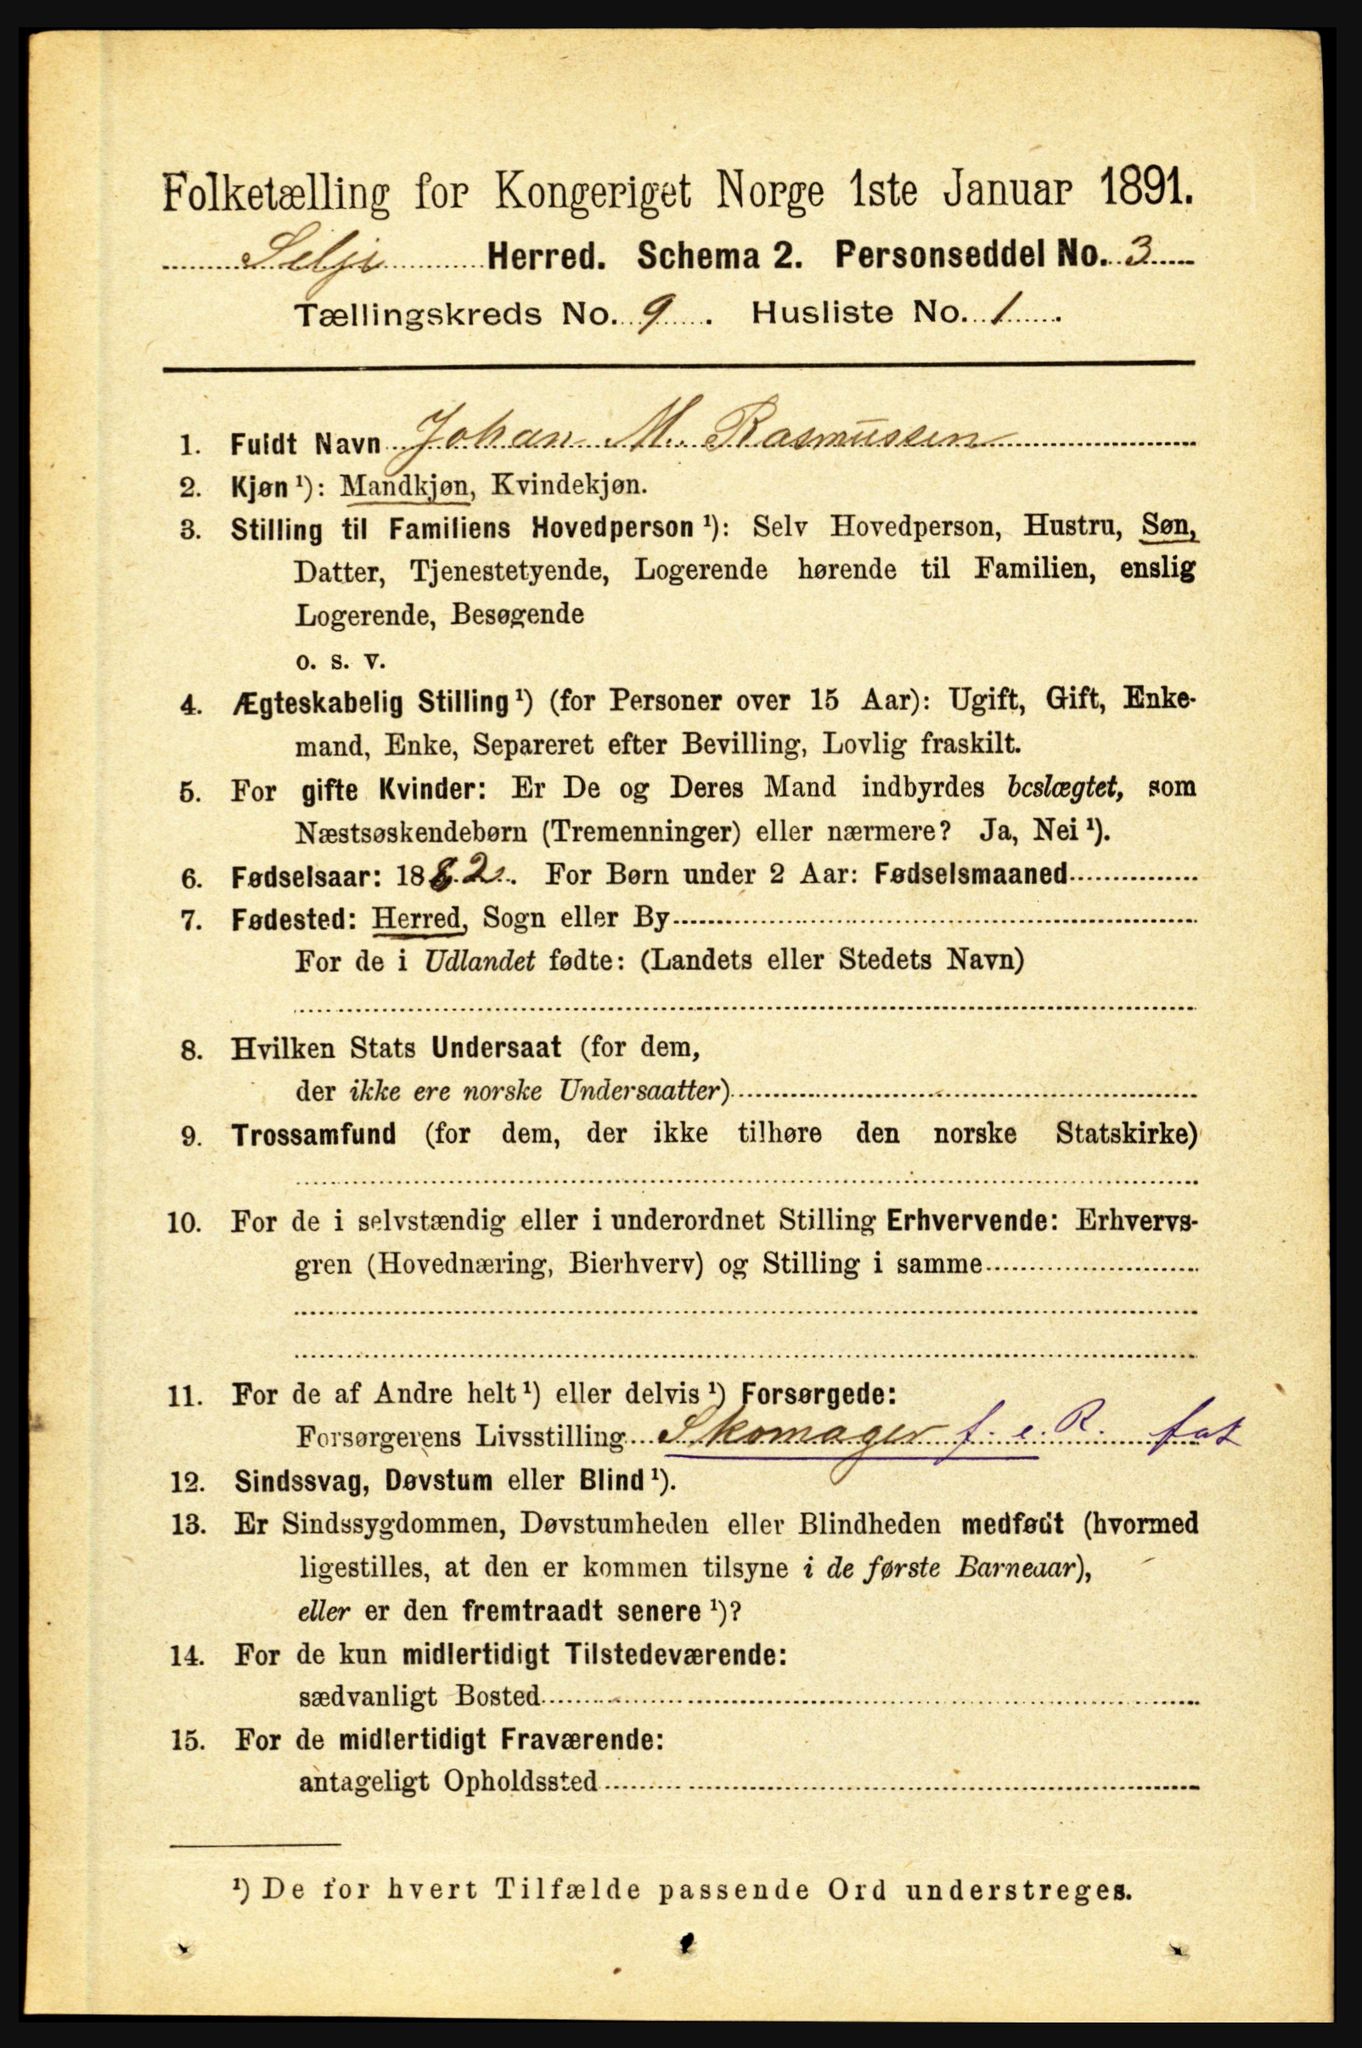 Folketælling for Kongeriget Norge 1ste Januar 1891.
Selje Herred. Schema 2. Personseddel No. 3
Tællingskreds No. 9. Husliste No. 1.
1. Fuldt Navn Johan M. Rasmussen
2. Kjøn ¹): Mandkjøn, Kvindekjøn.
3. Stilling til Familiens Hovedperson ¹): Selv Hovedperson, Hustru, Søn,
Datter, Tjenestetyende, Logerende hørende til Familien, enslig
Logerende, Besøgende
o. s. v.
4. Ægteskabelig Stilling ¹) (for Personer over 15 Aar): Ugift, Gift, Enke-
mand, Enke, Separeret efter Bevilling, Lovlig fraskilt.
5. For gifte Kvinder: Er De og Deres Mand indbyrdes beslægtet, som
Næstsøskendebørn (Tremenninger) eller nærmere? Ja, Nei ¹).
6. Fødselsaar: 1882. For Børn under 2 Aar: Fødselsmaaned
7. Fødested: Herred, Sogn eller By
For de i Udlandet fødte: (Landets eller Stedets Navn)
8. Hvilken Stats Undersaat (for dem,
der ikke ere norske Undersaatter)
9. Trossamfund (for dem, der ikke tilhøre den norske Statskirke)
10. For de i selvstændig eller i underordnet Stilling Erhvervende: Erhvervs-
gren (Hovednæring, Bierhverv) og Stilling i samme
11. For de af Andre helt ¹) eller delvis ¹) Forsørgede:
Forsørgerens Livsstilling Skomager f. e. R. fat
12. Sindssvag, Døvstum eller Blind ¹).
13. Er Sindssygdommen, Døvstumheden eller Blindheden medfødt (hvormed
ligestilles, at den er kommen tilsyne i de første Barneaar),
eller er den fremtraadt senere ¹)?
14. For de kun midlertidigt Tilstedeværende:
sædvanligt Bosted
15. For de midlertidigt Fraværende:
antageligt Opholdssted
¹) De for hvert Tilfælde passende Ord understreges.